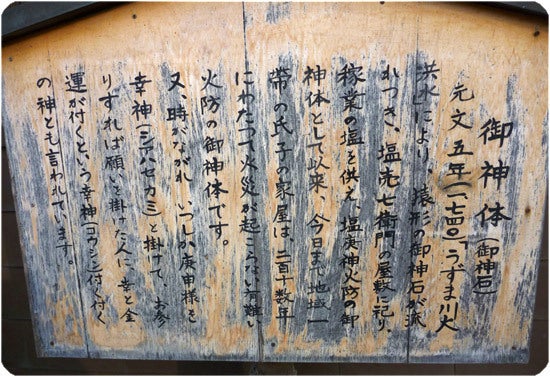 御神体(御神石)
元文五年(一七四〇)「うずま川大
洪水」により、猿形の御神石が流
れつき、塩売七右衛門の屋敷に祀り
稼業の塩を供え、塩庚神火防の御
神体として以来、今日まで地域一
帯の氏子の家屋は、二百十数年
にわたつて火災が起こらない有難い
火防の御神体です。
又、時がながれ、いつしか庚申様を
幸神(シアハセカミ)と掛けて、お参
りすれば願いを掛けた人に、幸と金
運が付くという幸神(コウシン)付く付く
の神とも言われています。